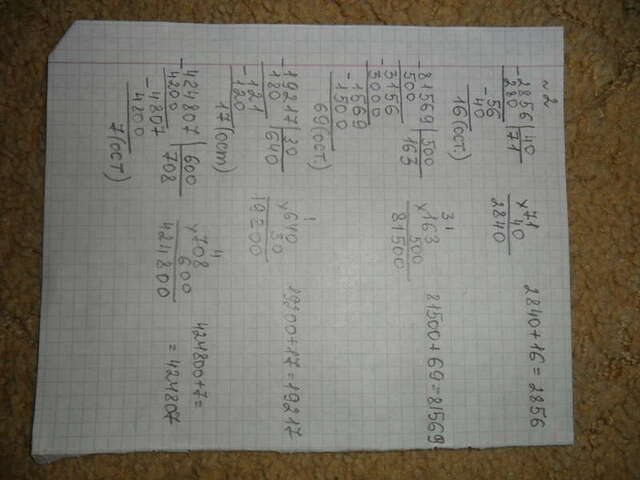 №2
- 2856 | 40
280 | 71
- 56
40
16 (ост.)
× 71
40
2840
2840 + 16 = 2856
- 81569 | 500
500 | 163
- 3156
3000
- 1569
1500
69 (ост.)
3 1
× 163
500
81500
81500 + 69 = 81569
- 19217 | 30
180 | 640
- 121
120
17 (ост)
1
× 640
30
19200
19200 + 17 = 19217
- 424807 | 600
4200 | 708
- 4807
4800
7 (ост)
4
× 708
600
424800
424800 + 7 =
= 424807